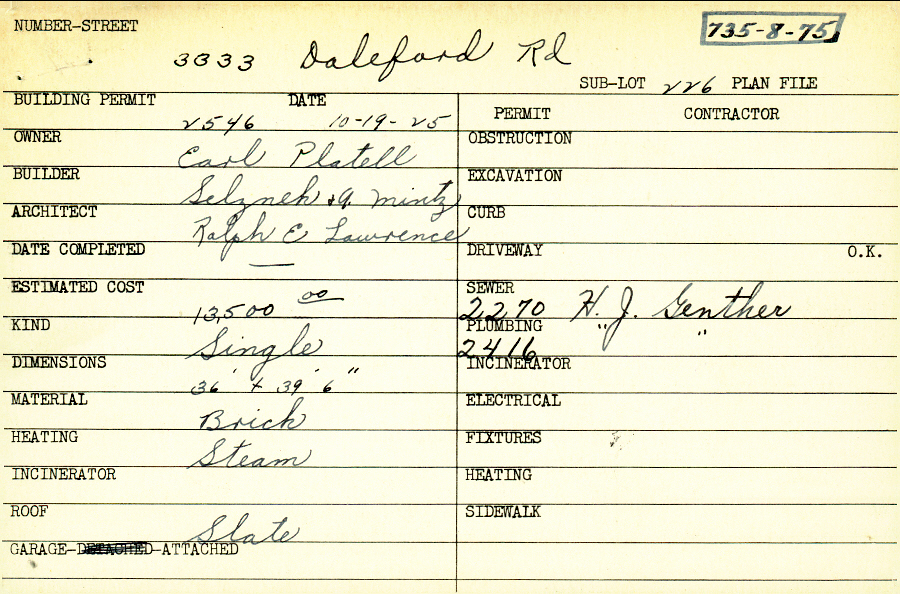 NUMBER-STREET
735-8-75
3333 Daleford Rd
SUB-LOT 226 PLAN FILE
BUILDING PERMIT DATE
2546 10-19-25
OWNER
Earl Platell
BUILDER
Selzneh & A. Mintz
ARCHITECT
Ralph E Lawrence
DATE COMPLETED
—
ESTIMATED COST
13,500 00
KIND
Single
DIMENSIONS
36' + 39' 6"
MATERIAL
Brick
HEATING
Steam
INCINERATOR
ROOF
Slate
GARAGE-DETACHED-ATTACHED
PERMIT CONTRACTOR
OBSTRUCTION
EXCAVATION
CURB
DRIVEWAY O.K.
SEWER
2270 H. J. Genther
PLUMBING " "
2416
INCINERATOR
ELECTRICAL
FIXTURES
HEATING
SIDEWALK